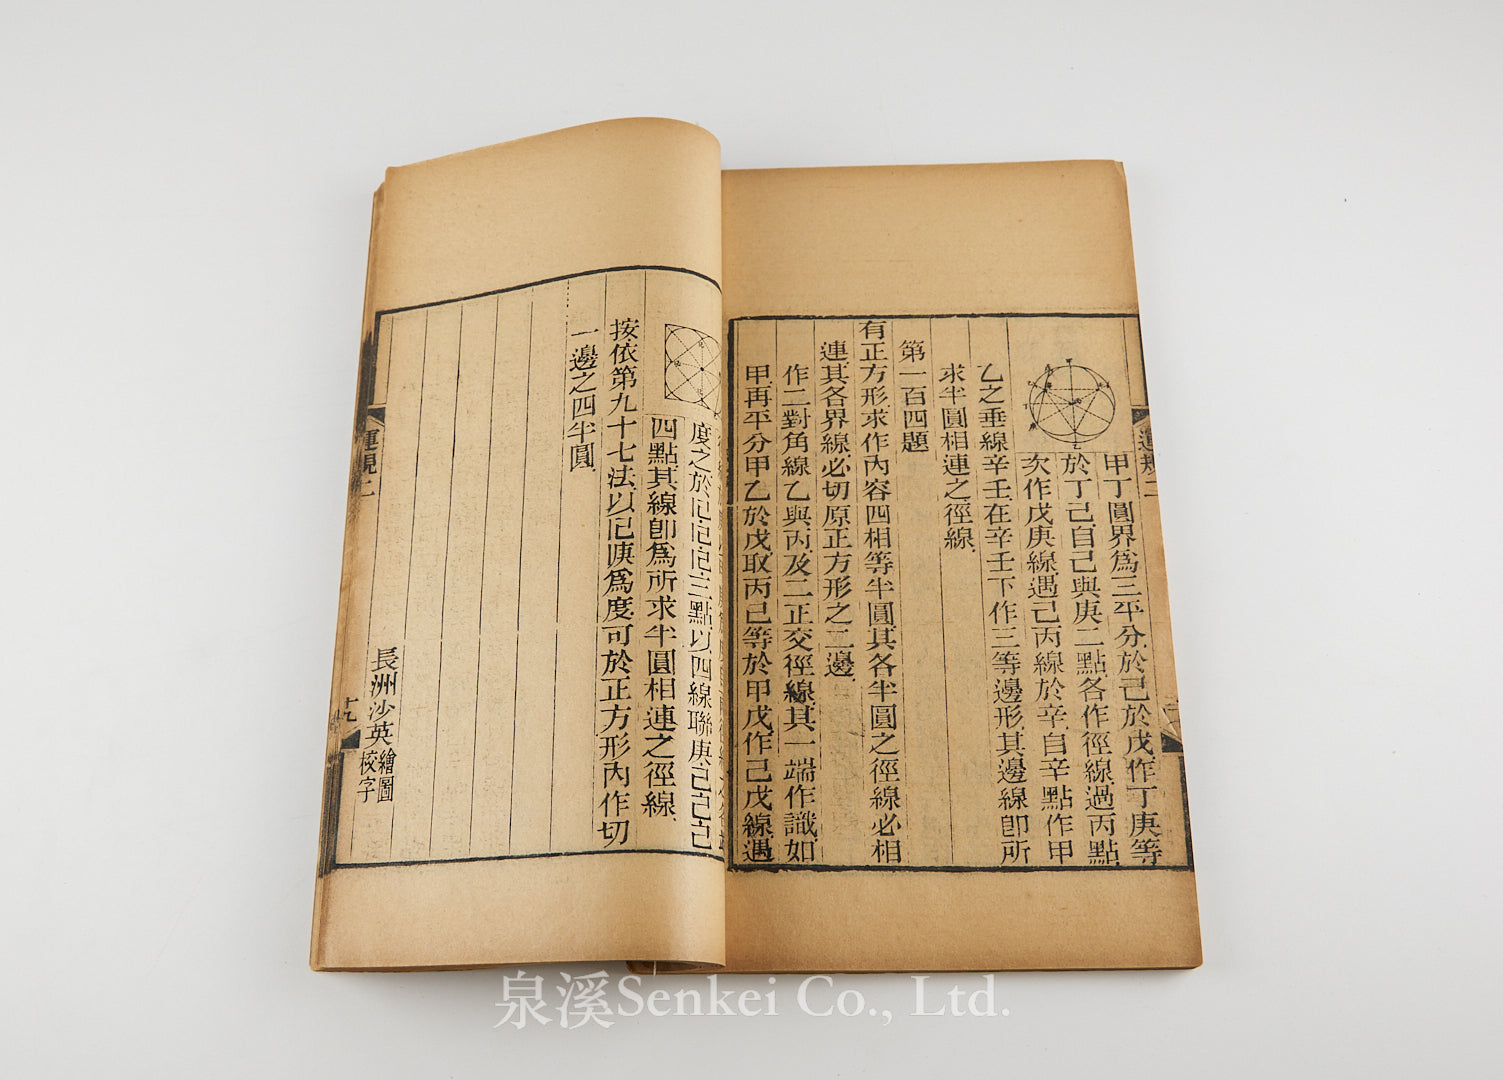 甲丁圓界爲三平分、於己於戊、作丁庚等
於丁己、自己與庚二點各作徑線、過丙點、
次作戊庚線、遇己丙線於辛、自辛點作甲
乙之垂線辛壬、在辛壬下作三等邊形、其邊線卽所
求半圓相連之徑線、
第一百四題
有正方形、求作內容四相等半圓、其各半圓之徑線必相
連、其各界線必切原正方形之二邊、
作二對角線乙與丙、及二正交徑線、其一端作識、如
甲、再平分甲乙於戊、取丙己等於甲戊、作己戊線、遇
度之於己己己三點、以四線聯庚己己己
四點、其線卽爲所求半圓相連之徑線、
按、依第九十七法、以己庚爲度、可於正方形內作切
一邊之四半圓、
長洲沙英繪圖
校字
運規二
十九
運規二
泉溪Senkei Co., Ltd.